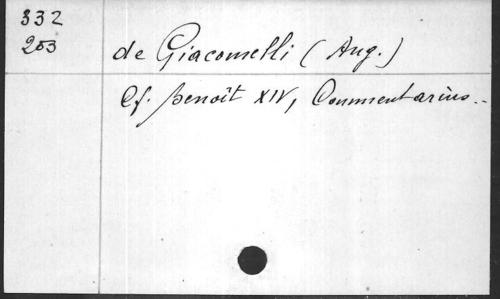 332
203
de Giacomelli (Aug.)
Cf. Benoît XIV, Commentarius..